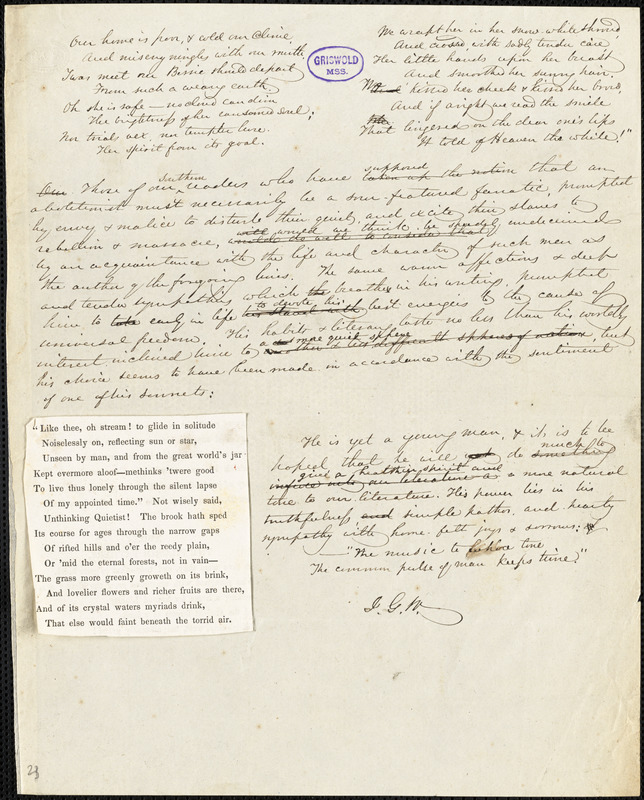 Our home is poor, & cold our clime,
And misery mingles with our mirth
'Twas meet our Bessie should depart
From such a weary earth.
Oh she is safe — no cloud can dim
The brightness of her ransomed soul;
Nor trials vex, nor tempter lure
Her spirit from its goal.
We wrapt her in her snow-white shroud,
And crossed with sadly tender care
Her little hands upon her breast
And smoothed her sunny hair.
We kissed her cheek & kissed her brow,
And if aright we read the smile
That lingered on the dear one's lips
It told of Heaven the while!"
GRISWOLD
MSS.
Southern supposed
Our Those of our readers who have taken up the notion that an
abolitionist must necessarily be a sour-featured fanatic, prompted
by envy & malice to disturb their quiet, and excite their slaves to
will would we think be speedily
rebellion & massacre, would do well to consider that undeceived
by an acquaintance with the life and character of such men as
the author of the foregoing lines. The same warm affections & deep
and tender sympathies which breathe in his writing, prompted
to devote, his
him to take early in life his stand with best energies to the cause of
universal freedom. His habits & literary taste no less than his worldly
a more quiet sphere
interest inclined him to another & less difficult sphere of action, but
his choice seems to have been made in accordance with the sentiment
of one of his sonnets:
"Like thee, oh stream! to glide in solitude
Noiselessly on, reflecting sun or star,
Unseen by man, and from the great world's jar
Kept evermore aloof—methinks 'twere good
To live thus lonely through the silent lapse
Of my appointed time." Not wisely said,
Unthinking Quietist! The brook hath sped
Its course for ages through the narrow gaps
Of rifted hills and o'er the reedy plain,
Or 'mid the eternal forests, not in vain—
The grass more greenly groweth on its brink,
And lovelier flowers and richer fruits are there,
And of its crystal waters myriads drink,
That else would faint beneath the torrid air.
He is yet a young man, & it is to be
much to
hoped that he will do something
give a healthier spirit and
infuse into our literature a a more natural
tone to our literature. His power lies in his
truthfulness and simple pathos, and hearty
sympathy with home-felt joys & sorrows:
"The music to whose tone
The common pulse of man keeps time."
J. G. W.
23